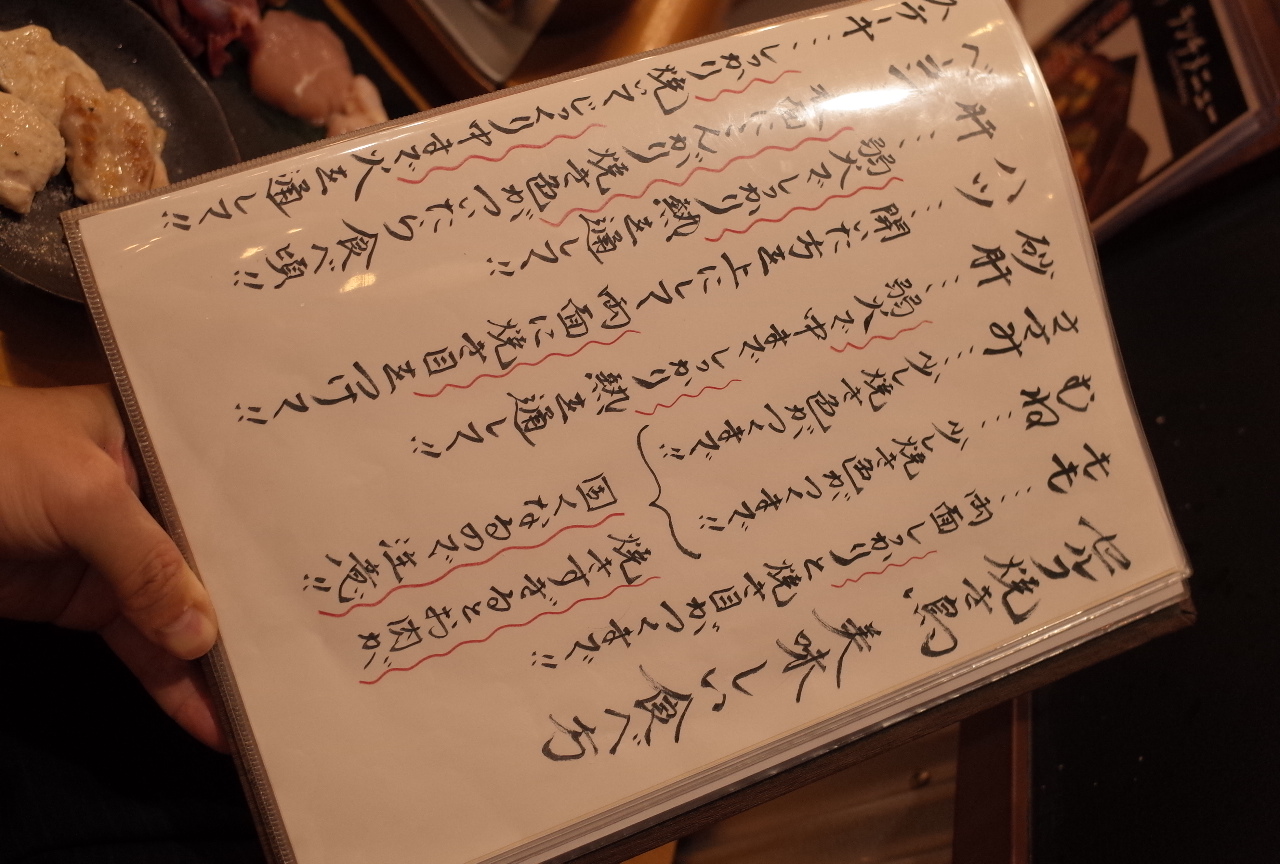 焼き鳥 美味しい食べ方
もも … 両面しっかりと焼き目がつくまで!!
むね … 少し焼き色がつくまで!!
ささみ … 少し焼き色がつくまで!!
焼きすぎるとお肉が
固くなるので注意!!
砂肝 … 弱火で中までしっかり熱を通して!!
ハツ … 開いた方を上にして両面に焼き目をつけて!!
肝 … 弱火でしっかり熱を通して!!
… 両面にこんがり焼き色がついたら食べ頃!!
ステーキ … しっかり焼でじっくり中まで火を通して!!
ランチメニュー